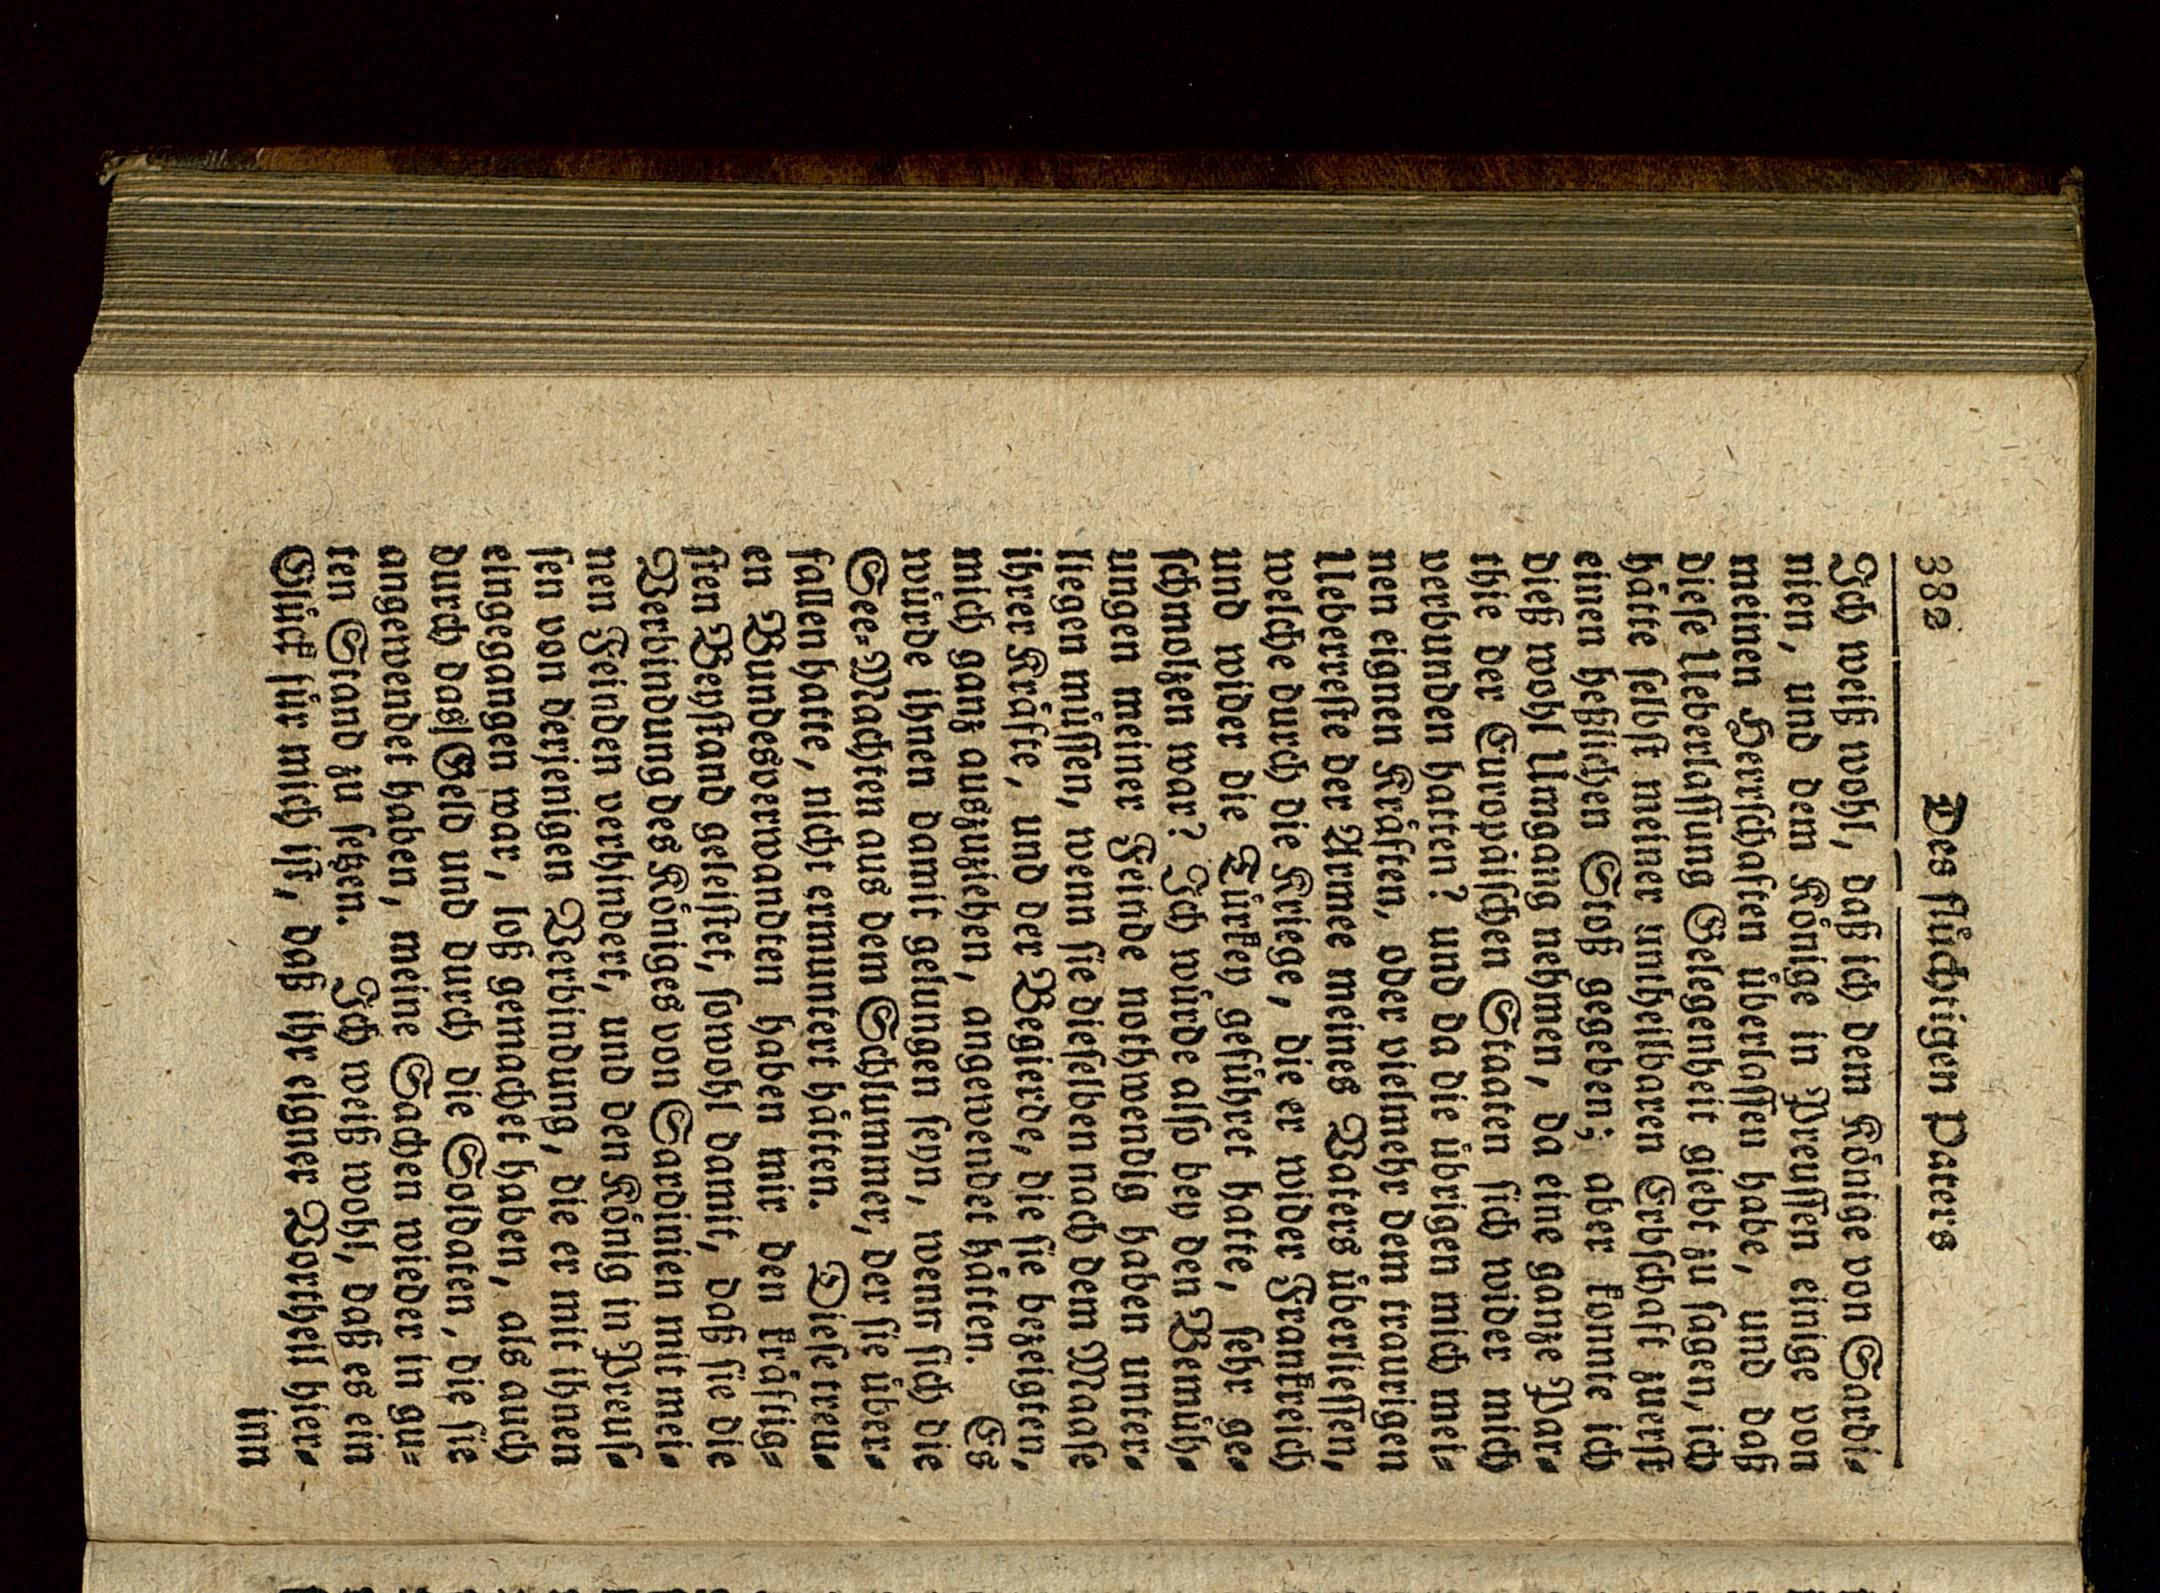 382 Des flüchtigen Paters
Ich weiß wohl, daß ich dem Könige von Sardi⸗
nien, und dem Könige in Preussen einige von
meinen Herrschaften überlassen habe, und daß
diese Ueberlassung Gelegenheit giebt zu sagen, ich
hätte selbst meiner untheilbaren Erbschaft zuerst
einen heßlichen Stoß gegeben; aber konnte ich
dieß wohl Umgang nehmen, da eine ganze Par⸗
thie der Europäischen Staaten sich wider mich
verbunden hatten? und da die übrigen mich mei⸗
nen eignen Kräften, oder vielmehr dem traurigen
Ueberreste der Armee meines Vaters überliessen,
welche durch die Kriege, die er wider Frankreich
und wider die Türken geführet hatte, sehr ge⸗
schmolzen war? Ich würde also bey den Bemüh⸗
ungen meiner Feinde nothwendig haben unter⸗
liegen müssen, wenn sie dieselben nach dem Maase
ihrer Kräfte, und der Begierde, die sie bezeigten,
mich ganz auszuziehen, angewendet hätten. Es
würde ihnen damit gelungen seyn, wenn sich die
See⸗Machten aus dem Schlummer, der sie über⸗
fallen hatte, nicht ermuntert hätten. Diese treu⸗
en Bundesverwandten haben mir den kräftig⸗
sten Beystand geleistet, sowohl damit, daß sie die
Verbindung des Königes von Sardinien mit mei⸗
nen Feinden verhindert, und den König in Preus⸗
sen von derjenigen Verbindung, die er mit ihnen
eingegangen war, loß gemachet haben, als auch
durch das Geld und durch die Soldaten, die sie
angewendet haben, meine Sachen wieder in gu⸗
ten Stand zu setzen. Ich weiß wohl, daß es ein
Glück für mich ist, daß ihr eigner Vortheil hier⸗
inn